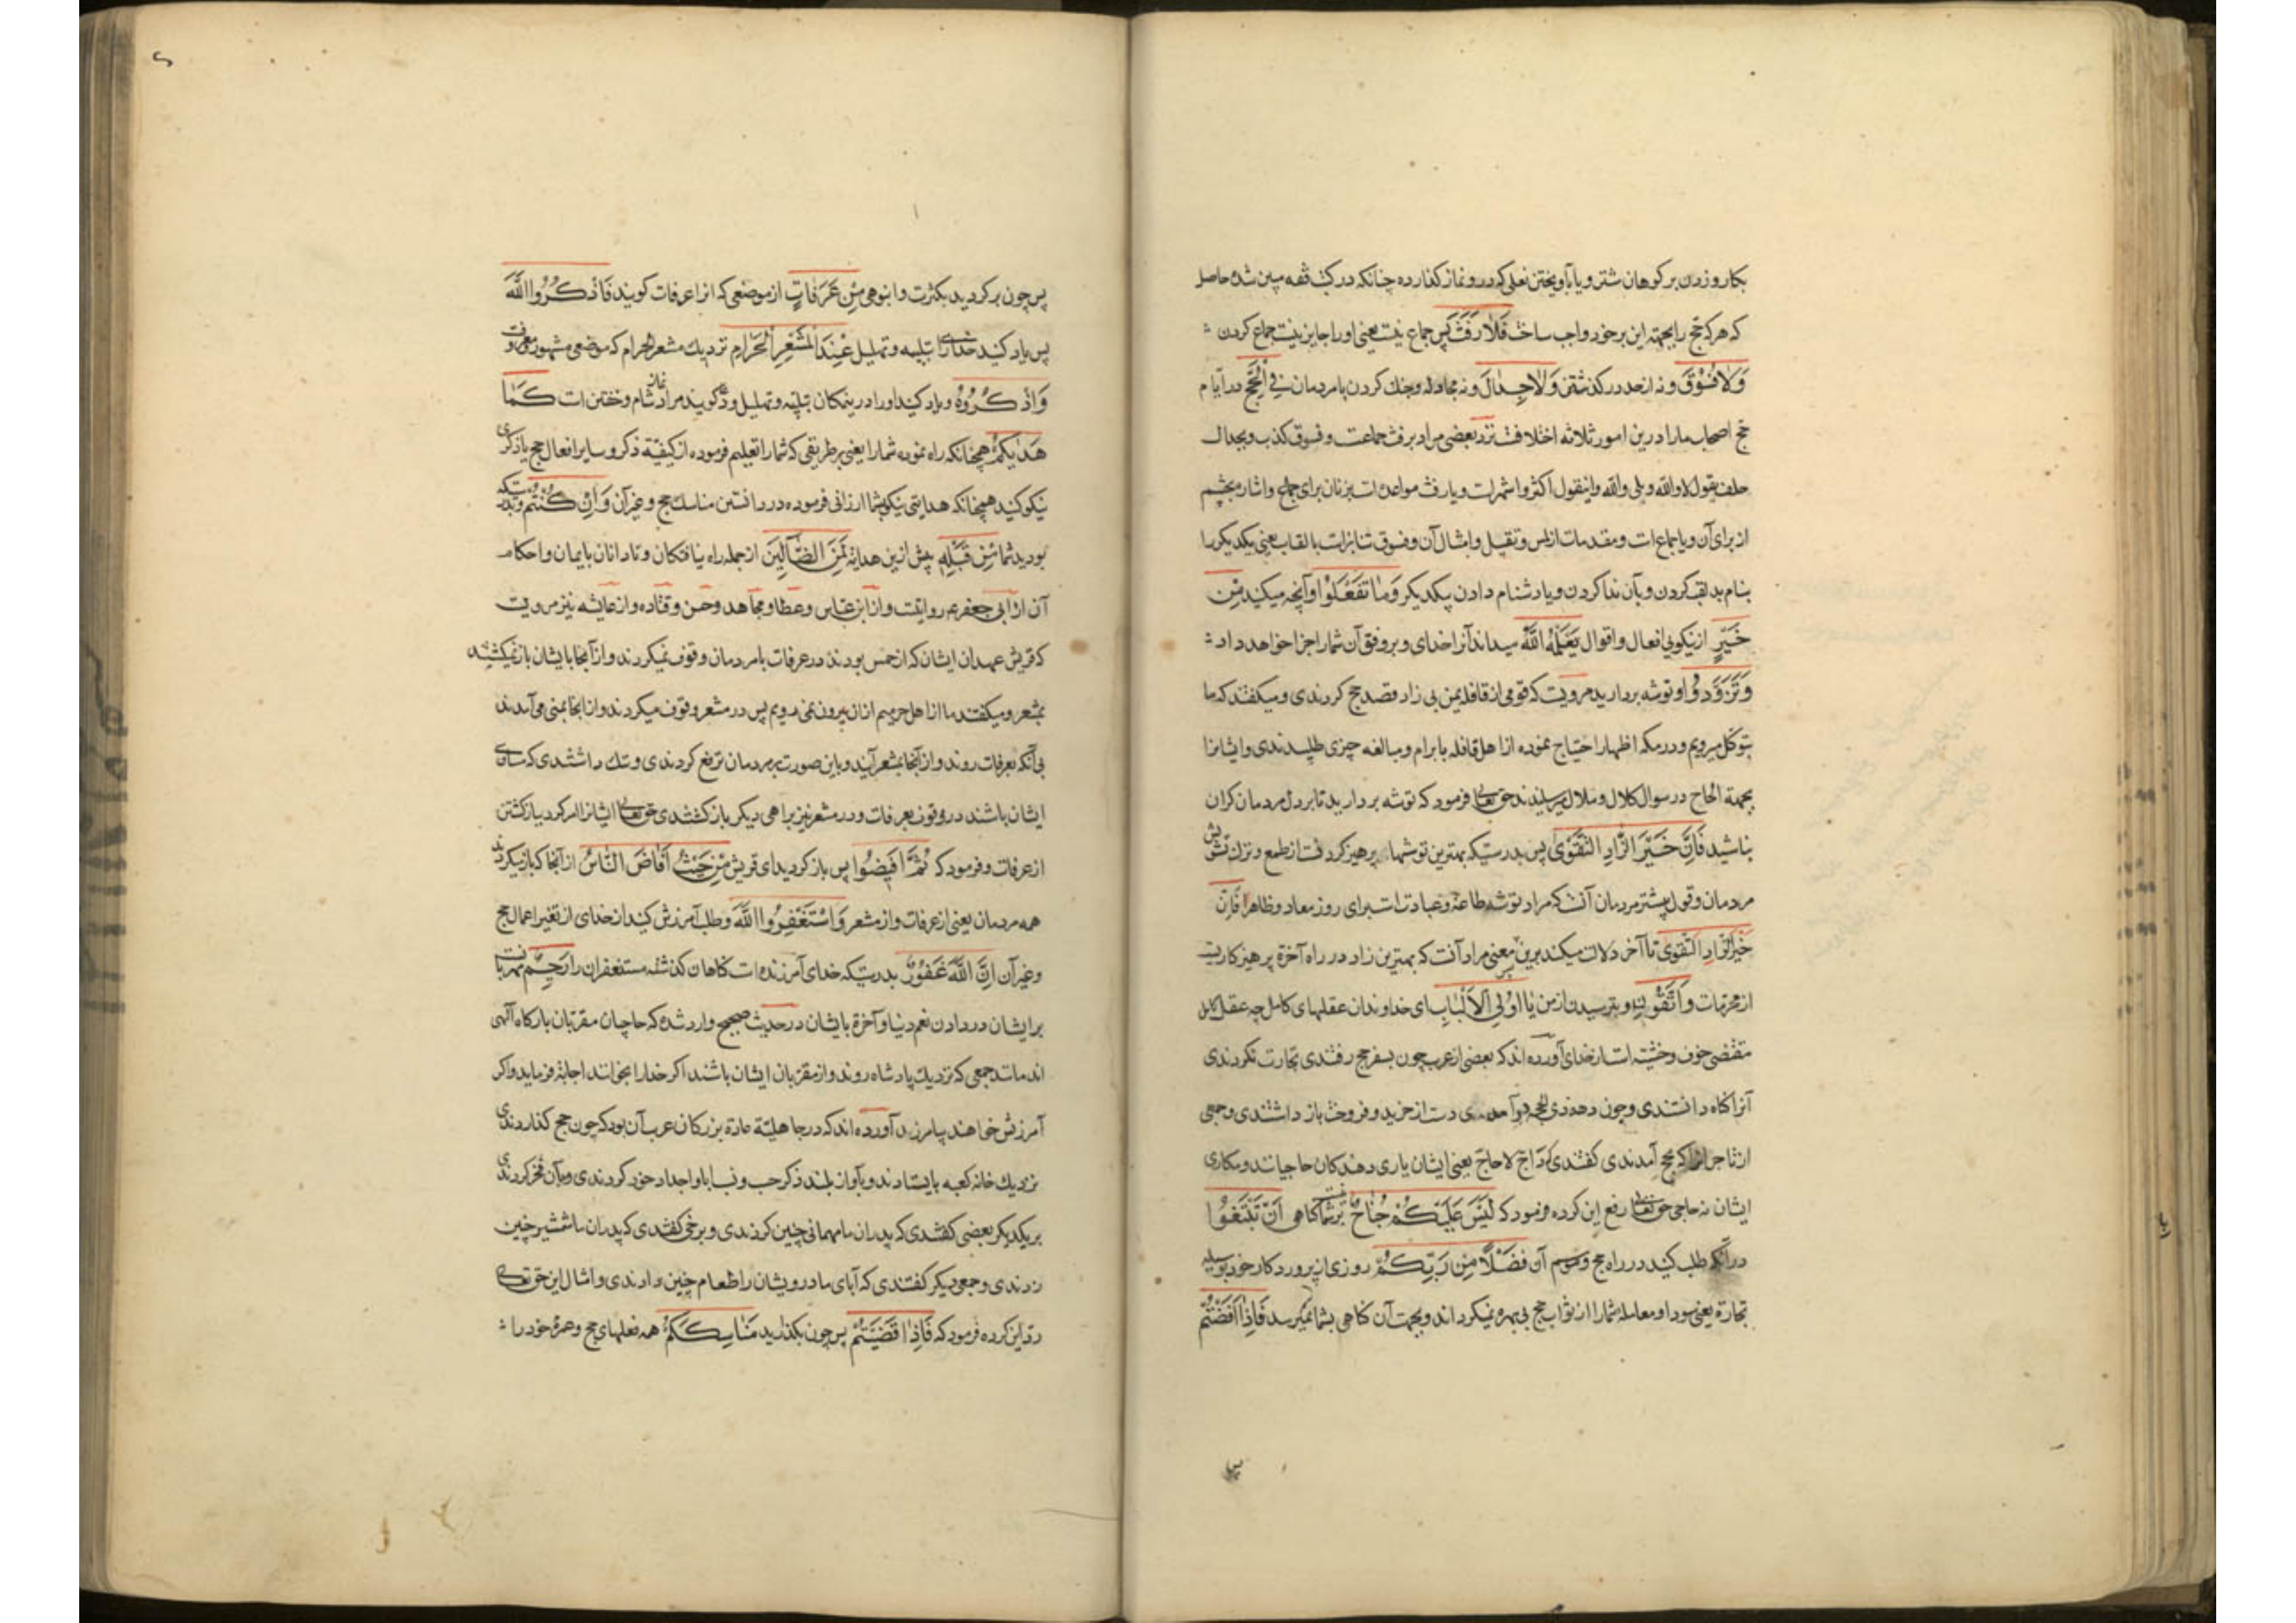 بکارد زدن بر کوهان شتر و یا بآویختن نعلی که درو نماز کذارده چنانکه در کتب فقه مبین شده حاصل
که هر که حج را بجهته این بر خود واجب ساخت فَلَا رَفَثَ پس جماع نیست یعنی او را جایز نیست جماع کردن
وَلَا فُسُوْقَ و نه از حد در کذشتن وَلَا جِدَالَ و نه مجادله و جنك کردن با مردمان فِي الْحَجِّ در ایام
حج اصحاب ما را درین امور ثلاثه اختلافست نزد بعضی مراد برفث جماعست و فسوق کذب و بجدال
حلف بقول لا والله و بلی والله و اینقول اکثر و اشهرست و یا رفث مواعده است بزنان برای جماع و اشاره بچشم
از برای آن و یا جماعست و مقدمات از لمس و تقبیل و امثال آن و فسوق تنابزاست بالقاب یعنی یکدیکر را
بنام بد لقب کردن و بآن ندا کردن و یا دشنام دادن یکدیکر وَمَا تَفْعَلُوْا و آنچه میکنید مِنْ
خَيْرٍ از نیکویی افعال و اقوال يَعْلَمْهُ اللّٰهُ میداند آنرا خدای و بر وفق آن شما را جزا خواهد داد
وَتَزَوَّدُوْا و توشه بردارید مرویست که قومی از قافله یمن بی زاد قصد حج کردندی و میکفتند که ما
بتوکل میرویم و در مکه اظهار احتیاج نموده از اهل قافله بابرام و مبالغه چیزی طلبیدندی و ایشانرا
بجهة الحاح در سوال کلال و ملال میرسانیدند حق تعالی فرمود که توشه بردارید تا بر دل مردمان کران
نباشید فَاِنَّ خَيْرَ الزَّادِ التَّقْوَىٰ پس بدرستیکه بهترین توشها پرهیز کردنست از طمع و ترك تشویش
مردمان و قول بیشتر مردمان آنست که مراد توشه طاعة و عبادتست برای روز معاد و ظاهرا فَاِنَّ
خَيْرَ الزَّادِ التَّقْوَىٰ تا آخر دلالت میکند برین معنی مراد آنست که بهترین زاد در راه آخرة پرهیزکاریست
از محرمات وَاتَّقُوْنِ و بترسید از من يَا اُولِي الْاَلْبَابِ ای خداوندان عقلهای کامل چه عقل کامل
مقتضی خوف و خشیه است از خدای آورده اند که بعضی از عرب چون بسفر حج رفتندی تجارت نکردندی
آنرا کناه دانستندی و چون دهه ذی الحجه در آمدی دست از خرید و فروخت باز داشتندی و جمعی
از تاجرانرا که بحج آمدندی کفتندی که دَاجّ لا حاجّ یعنی ایشان یاری دهندکان حاجیانند و مکاری
ایشان نه حاجی حق تعالی رفع این کرده فرمود که لَيْسَ عَلَيْكُمْ جُنَاحٌ نیست بر شما کناهی اَنْ تَبْتَغُوْا
در آنکه طلب کنید در راه حج و موسم آن فَضْلًا مِنْ رَبِّكُمْ روزی از پروردکار خود بوسیله
تجارة یعنی سود او معامله شما را از ثواب حج بی بهره نمیکرداند و بجهت آن کناهی بشما نمیرسد فَاِذَا اَفَضْتُمْ
پس
پس چون برکردید بکثرت و انبوهی مِنْ عَرَفَاتٍ از موضعی که انرا عرفات کویند فَاذْكُرُوا اللّٰهَ
پس یاد کنید خدای را بتلبیه و تهلیل عِنْدَ الْمَشْعَرِ الْحَرَامِ نزدیك مشعر الحرام که موضعی مشهور معروفست
وَاذْكُرُوْهُ و یاد کنید او را درینمکان بتلبیه و تهلیل و کویند مراد نماز شام و خفتن است كَمَا
هَدٰيكُمْ همچنانکه راه نموده شما را یعنی بر طریقی که شما را تعلیم فرموده از کیفیة ذکر و سایر افعال حج یا ذکری
نیکو کنید همچنانکه هدایتی نیکو بشما ارزانی فرموده در دانستن مناسك حج و غیر آن وَاِنْ كُنْتُمْ و بدرستیکه
بودید شما مِنْ قَبْلِهِ پیش ازین هدایة لَمِنَ الضَّآلِّيْنَ از جمله راه نیافتکان و نادانان بایمان و احکام
آن از ابی جعفر ع م روایتست و از ابن عباس و عطا و مجاهد و حسن و قتاده و از عایشه نیز مرویست
که قریش عهدان ایشان که از حمس بودند در عرفات با مردمان وقوف نمیکردند و از آنجا با ایشان باز نمیکشتند
بمشعر و میکفتند ما از اهل حرمیم از ان بیرون نمی رویم پس در مشعر وقوف میکردند و از انجا بمنی می آمدند
بی آنکه بعرفات روند و از آنجا بمشعر آیند و باین صورت بر مردمان ترفع کردندی و ننك داشتندی که مساوی
ایشان باشند در وقوف بعرفات و در مشعر نیز براهی دیکر باز کشتندی حق تعالی ایشانرا امر کرد بباز کشتن
از عرفات و فرمود که ثُمَّ اَفِيْضُوْا پس باز کردید ای قریش مِنْ حَيْثُ اَفَاضَ النَّاسُ از آنجا که باز میکردند
همه مردمان یعنی از عرفات و از مشعر وَاسْتَغْفِرُوا اللّٰهَ و طلب آمرزش کنید از خدای از تغیر اعمال حج
و غیر آن اِنَّ اللّٰهَ غَفُوْرٌ بدرستیکه خدای آمرزنده است کناهان کذشته مستغفران را رَحِيْمٌ مهربانست
بر ایشان در دادن نعم دنیا و آخرة با یشان در حدیث صحیح وارد شده که حاجیان مقربان بارکاه آلهی
اند مانند جمعی که نزدیك پادشاه روند و از مقربان ایشان باشند اکر خدا را بخوانند اجابة فرماید و اکر
آمرزش خواهند بیامرزد آورده اند که در جاهلیة عادة بزرکان عرب آن بود که چون حج کذاردندی
نزدیك خانه کعبه بایستادند و بآواز بلند ذکر حسب و نسب ابا و اجداد خود کردندی و بآن فخر کردندی
بر یکدیکر بعضی کفتندی که پدران ما مهمانی چنین کردندی و برخی کفتندی که پدران ما شمشیر چنین
زدندی و جمعی دیکر کفتندی که آبای ما درویشان را طعام چنین دادندی و امثال این حق تعالی
رد این کرده فرمود که فَاِذَا قَضَيْتُمْ پس چون بکذارید مَنَاسِكَكُمْ همه فعلهای حج و عمرهٔ خود را